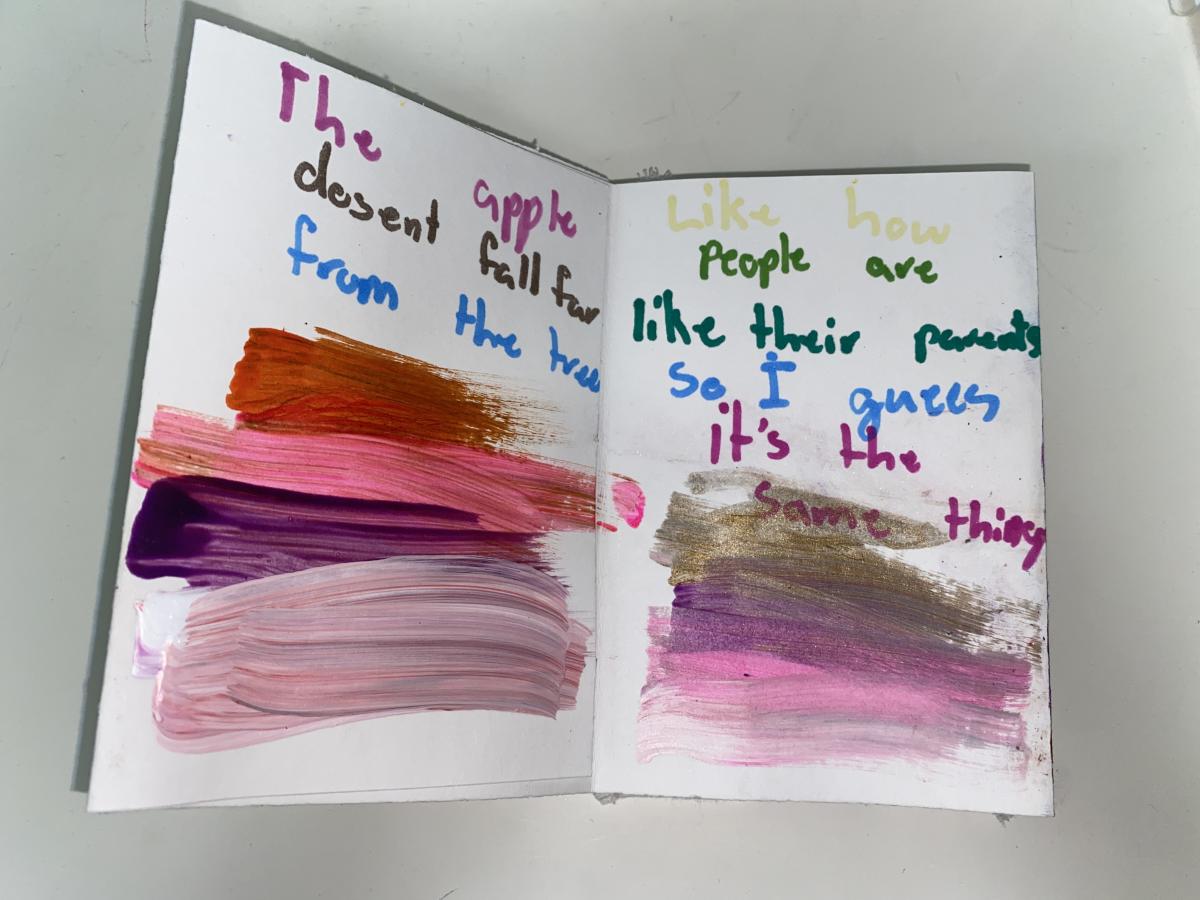 The
apple
desent
fall far
from the tree
Like how
People are
like their parents
So I guees
it's the
Same thing